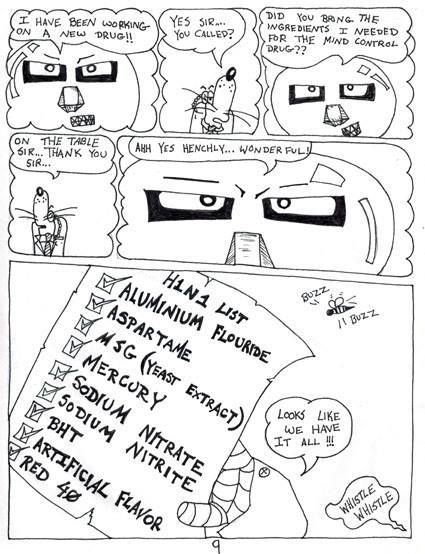 I HAVE BEEN WORKING
ON A NEW DRUG!!
YES SIR....
YOU CALLED?
DID YOU BRING THE
INGREDIENTS I NEEDED
FOR THE MIND CONTROL
DRUG??
ON THE TABLE
SIR... THANK YOU
SIR...
AHH YES HENCHLY... WONDERFUL!
H1N1 LIST
ALUMINIUM FLOURIDE
ASPARTAME
MSG (YEAST EXTRACT)
MERCURY
SODIUM NITRATE
SODIUM NITRITE
BHT
ARTIFICIAL FLAVOR
RED 40
BUZZ
!! BUZZ
LOOKS LIKE
WE HAVE
IT ALL !!!
WHISTLE
WHISTLE
9